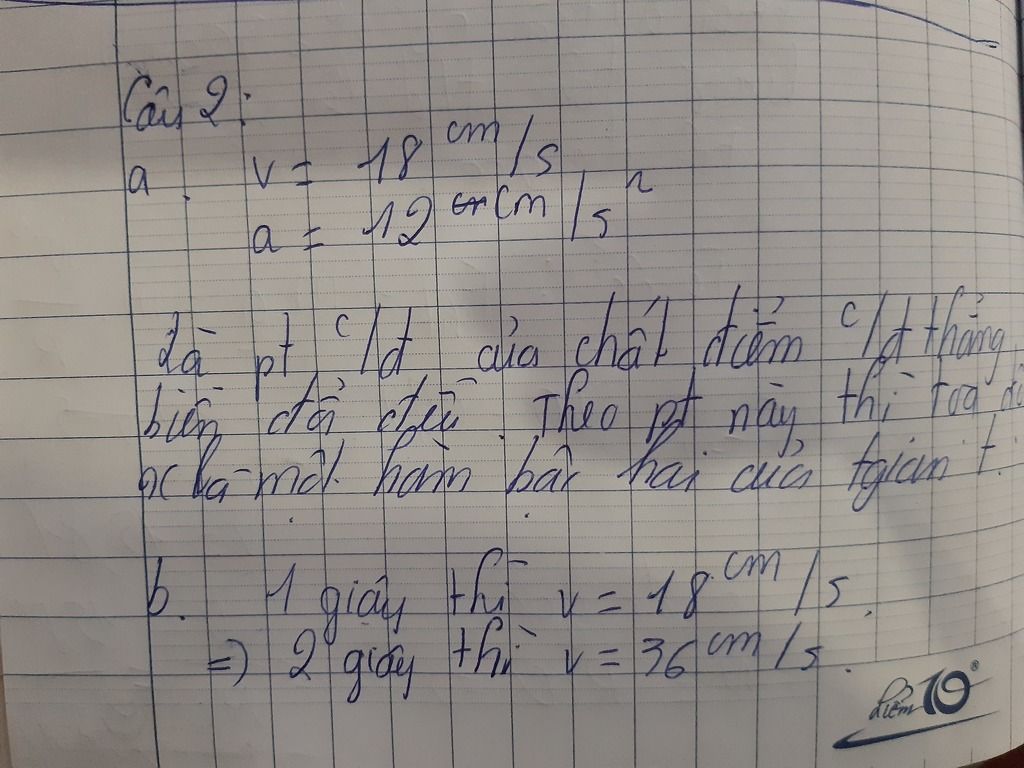 Câu 2:
a. v = 18 cm/s
a = 12 cm/s²
Là pt c/đ của chất điểm c/đ thẳng
biến đổi đều. Theo pt này thì toạ độ
x là một hàm bậc hai của tgian t.
b. 1 giây thì v = 18 cm/s.
=) 2 giây thì v = 36 cm/s.
điểm 10®